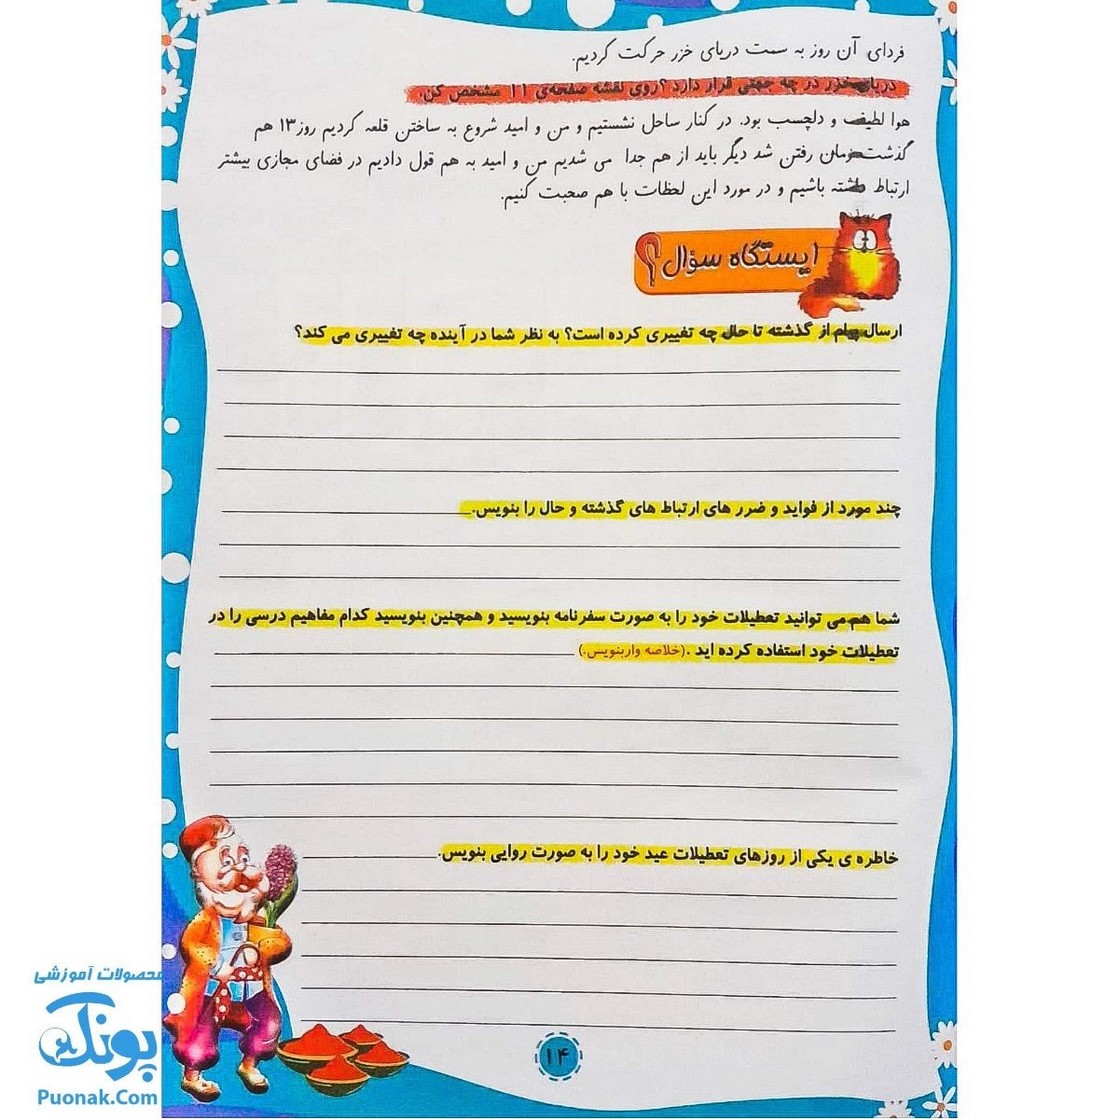 فردای آن روز به سمت دریای خزر حرکت کردیم.
دریای خزر در چه جهتی قرار دارد؟ روی نقشه صفحه‌ی ۱۱ مشخص کن.
هوا لطیف و دلچسب بود. در کنار ساحل نشستیم و من و امید شروع به ساختن قلعه کردیم روز۱۳ هم
گذشت زمان رفتن شد دیگر باید از هم جدا می شدیم من و امید به هم قول دادیم در فضای مجازی بیشتر
ارتباط داشته باشیم و در مورد این لحظات با هم صحبت کنیم.
ایستگاه سؤال؟
ارسال پیام از گذشته تا حال چه تغییری کرده است؟ به نظر شما در آینده چه تغییری می کند؟
چند مورد از فواید و ضرر های ارتباط های گذشته و حال را بنویس.
شما هم می توانید تعطیلات خود را به صورت سفرنامه بنویسید و همچنین بنویسید کدام مفاهیم درسی را در
تعطیلات خود استفاده کرده اید .(خلاصه واربنویس.)
خاطره ی یکی از روزهای تعطیلات عید خود را به صورت روایی بنویس.
محصولات آموزشی
پونک
Puonak.Com
۱۴